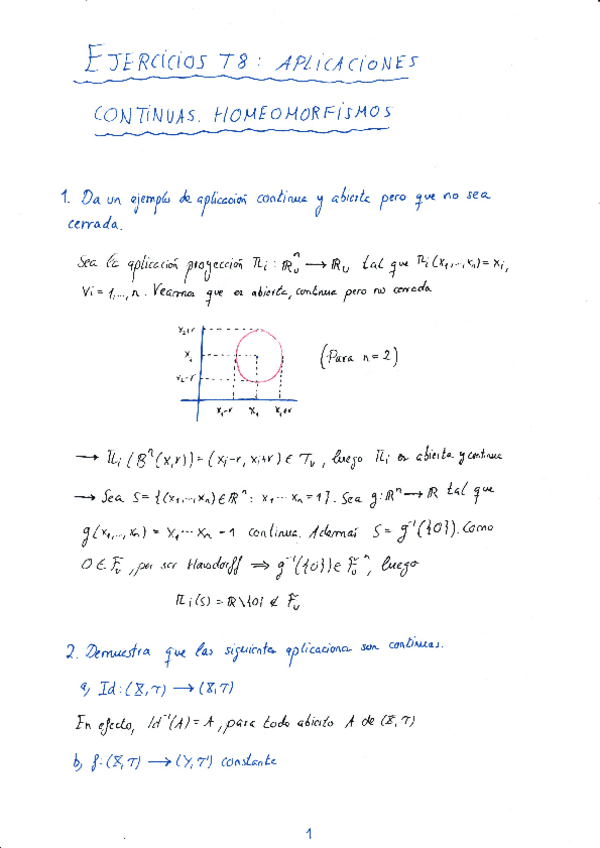 EJERCICIOS T8: APLICACIONES
CONTINUAS. HOMEOMORFISMOS
1. Da un ejemplo de aplicación continua y abierta pero que no sea
cerrada.
Sea la aplicación proyección Πi: ℝᵤⁿ → ℝᵤ tal que Πi(x₁,...,xₙ)=xi,
∀i=1,...,n. Veamos que es abierta, continua pero no cerrada
x₂+r
x₂
x₂-r
(Para n=2)
x₁-r x₁ x₁+r
→ Πi(Bⁿ(x,r))=(xi-r, xi+r)∈Tᵤ, luego Πi es abierta y continua
→ Sea S={(x₁,...,xₙ)∈ℝⁿ: x₁···xₙ=1}. Sea g:ℝⁿ→ℝ tal que
g(x₁,...,xₙ)=x₁···xₙ-1 continua. Además S=g⁻¹({0}). Como
0∈Fᵤ, por ser Hausdorff ⇒ g⁻¹({0})∈Fᵤⁿ, luego
Πi(S)=ℝ\{0}∉Fᵤ
2. Demuestra que las siguientes aplicaciones son continuas.
a) Id:(X,T)→(X,T)
En efecto, Id⁻¹(A)=A, para todo abierto A de (X,T)
b) f:(X,T)→(Y,T') constante
1